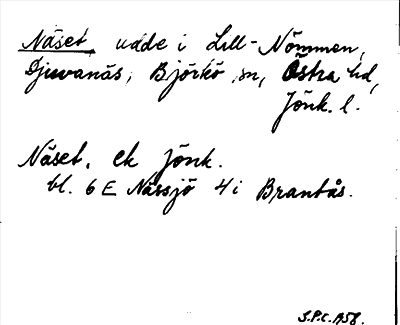 Näset, udde i Lill-Nömmen,
Djuvanäs, Björkö sn, Östra hd,
Jönk. l.
Näset. ek Jönk.
bl. 6 E Nässjö 4 i Brantås.
S.P.C. 1958.